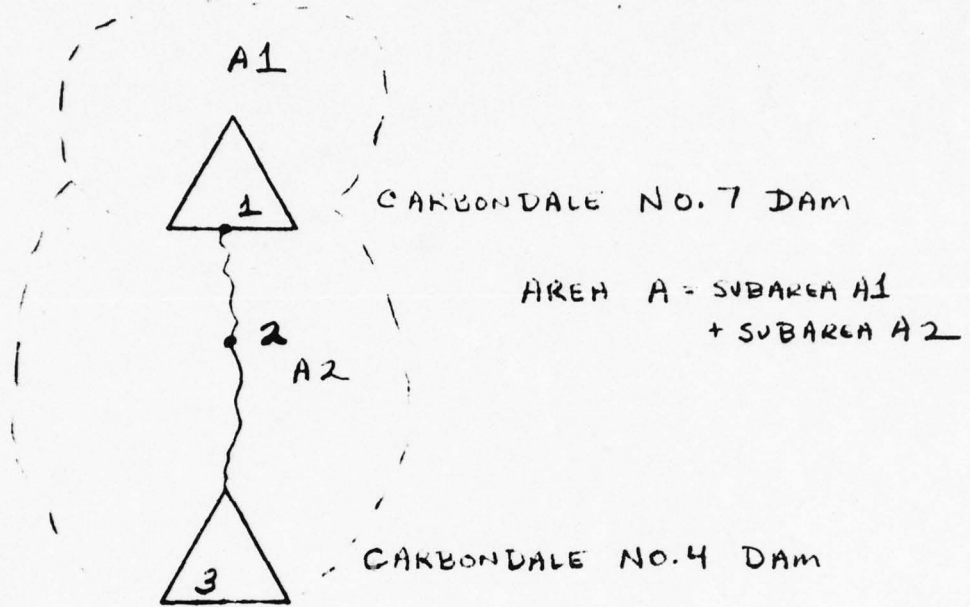 A1
1
CARBONDALE NO. 7 DAM
AREA A = SUBAREA A1
+ SUBAREA A2
2
A2
CARBONDALE NO. 4 DAM
3